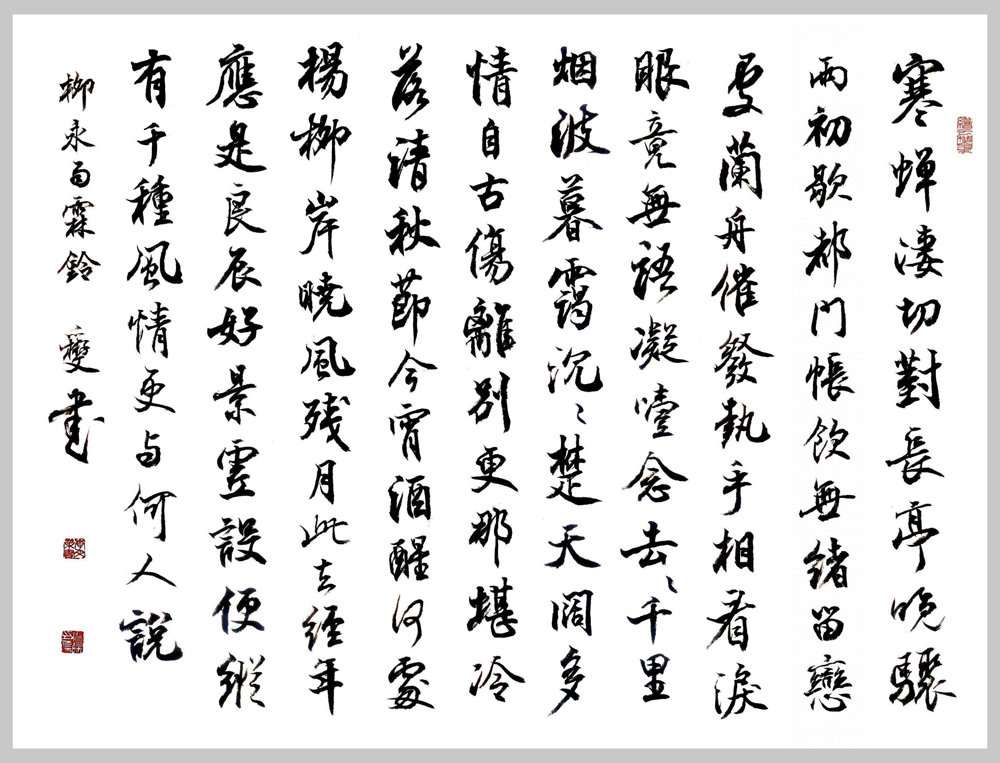 寒蝉淒切對長亭晚驟
雨初歇都門帳飲無緒留戀
处蘭舟催發執手相看淚
眼竟無語凝噎念去〻千里
烟波暮靄沉〻楚天闊多
情自古傷離別更那堪冷
落清秋節今宵酒醒何處
楊柳岸曉風残月此去經年
應是良辰好景虛設便縱
有千種風情更与何人說
柳永雨霖鈴 燮書